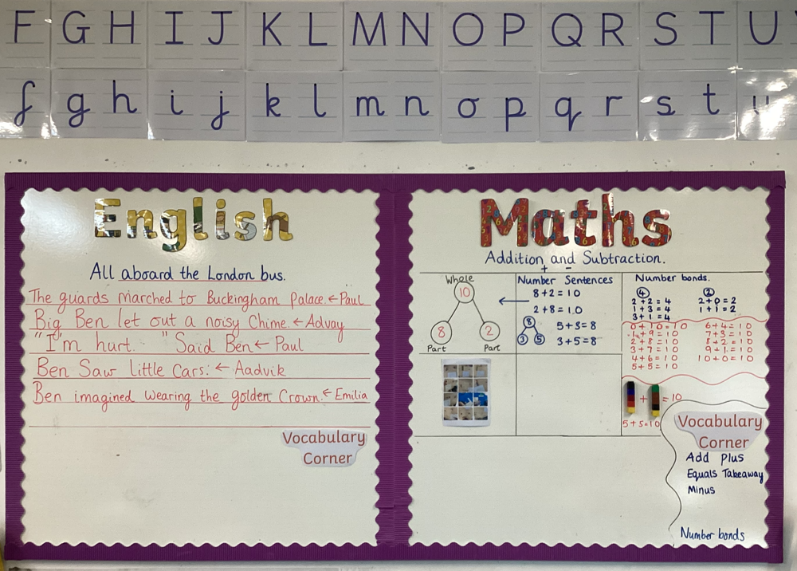 F G H I J K L M N O P Q R S T U
f g h i j k l m n o p q r s t u
English
All aboard the London bus.
The guards marched to Buckingham Palace. ← Paul
Big Ben let out a noisy Chime. ← Advay
"I'm hurt. " Said Ben ← Paul
Ben Saw little Cars. ← Aadvik
Ben imagined wearing the golden Crown. ← Emilia
Vocabulary
Corner
Maths
Addition and Subtraction.
+ -
Whole
10
8 2
Part Part
Number Sentences
8+2=10
2+8=10
8
3 5
5+3=8
3+5=8
Number bonds.
4
2+2=4
1+3=4
3+1=4
2
2+0=2
1+1=2
0+10=10
1+9=10
2+8=10
3+7=10
4+6=10
5+5=10
6+4=10
7+3=10
8+2=10
9+1=10
10+0=10
+ =10
5+5=10
Vocabulary
Corner
Add Plus
Equals Takeaway
Minus
Number bonds